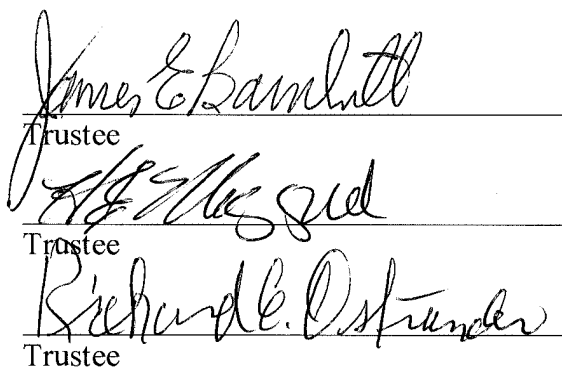 James E Barnhill
Trustee
Trustee
Richard E. Ostrander
Trustee